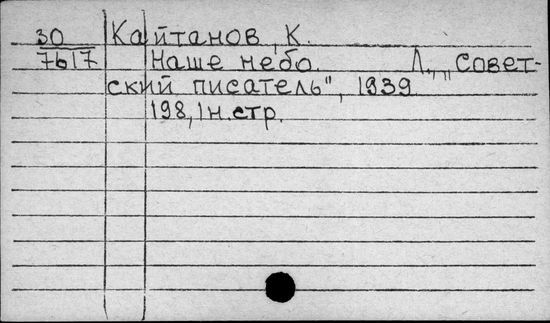 30 Кайтанов, К.
7617 Наше небо. Л., „Совет-
ский писатель", 1939
198, 1 н. стр.